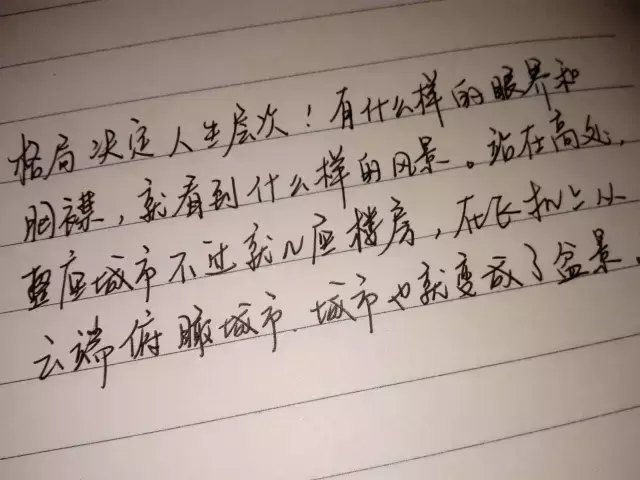 格局决定人生层次！有什么样的眼界和
胸襟，就看到什么样的风景。站在高处，
整座城市不过就几座楼房，在飞机上从
云端俯瞰城市、城市也就变成了盆景。